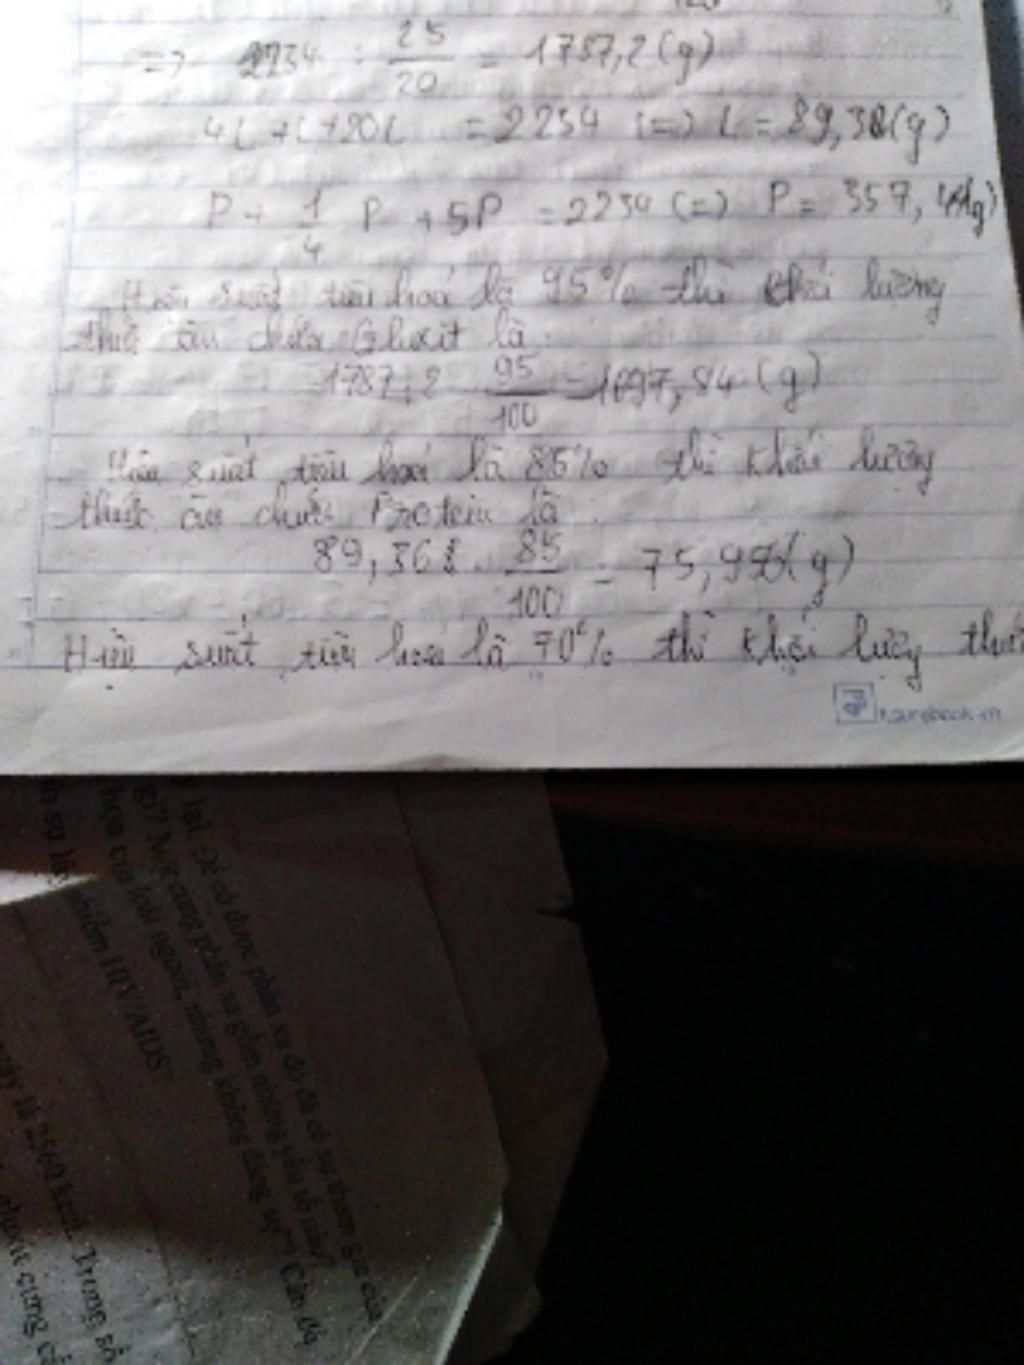 => 2234 : 25/20 = 1787,2 (g)
4L + L + 20L = 2234 (=) L = 89,36 (g)
P + 1/4 P + 5P = 2234 (=) P = 357, (g)
Hiệu suất tiêu hoá là 95% thì khối lượng
thức ăn chứa Gluxit là :
1787,2 . 95/100 = 1697,84 (g)
Hiệu suất tiêu hoá là 85% thì khối lượng
thức ăn chứa Protein là :
89,36 . 85/100 = 75,956 (g)
Hiệu suất tiêu hoá là 70% thì khối lượng thức
lại. Để có được phản xạ đó đã có sự tham gia của
gì? Một cung phản xạ gồm những yếu tố nào?
họa của loài người, nhưng không đáng sợ". Căn
sự lây nhiễm HIV/AIDS?
ngày là 2560 kcal. Trong số
cung cấp